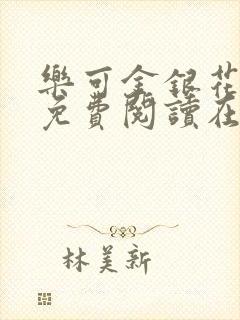 樂可金銀花
免費閱讀在
林美新